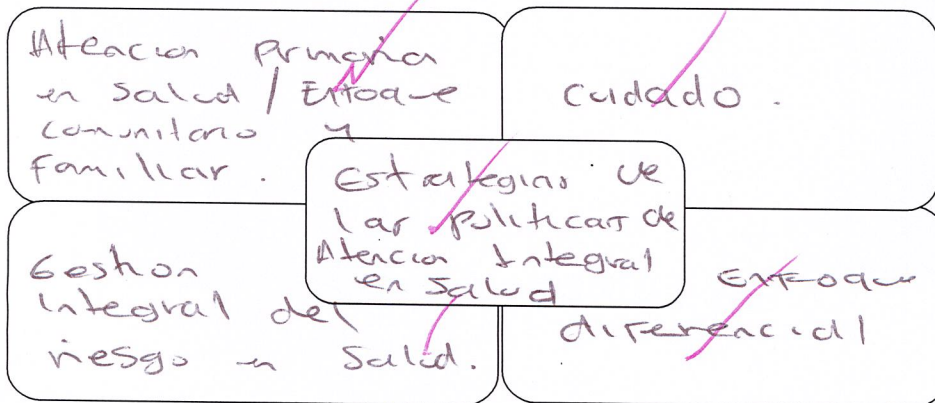 Atencion primaria
en salud / Enfoque
comunitario y
familiar.
cuidado.
Estrategias de
las politicas de
Atencion Integral
en Salud
Gestion
integral del
riesgo en Salud.
Enfoque
diferencial